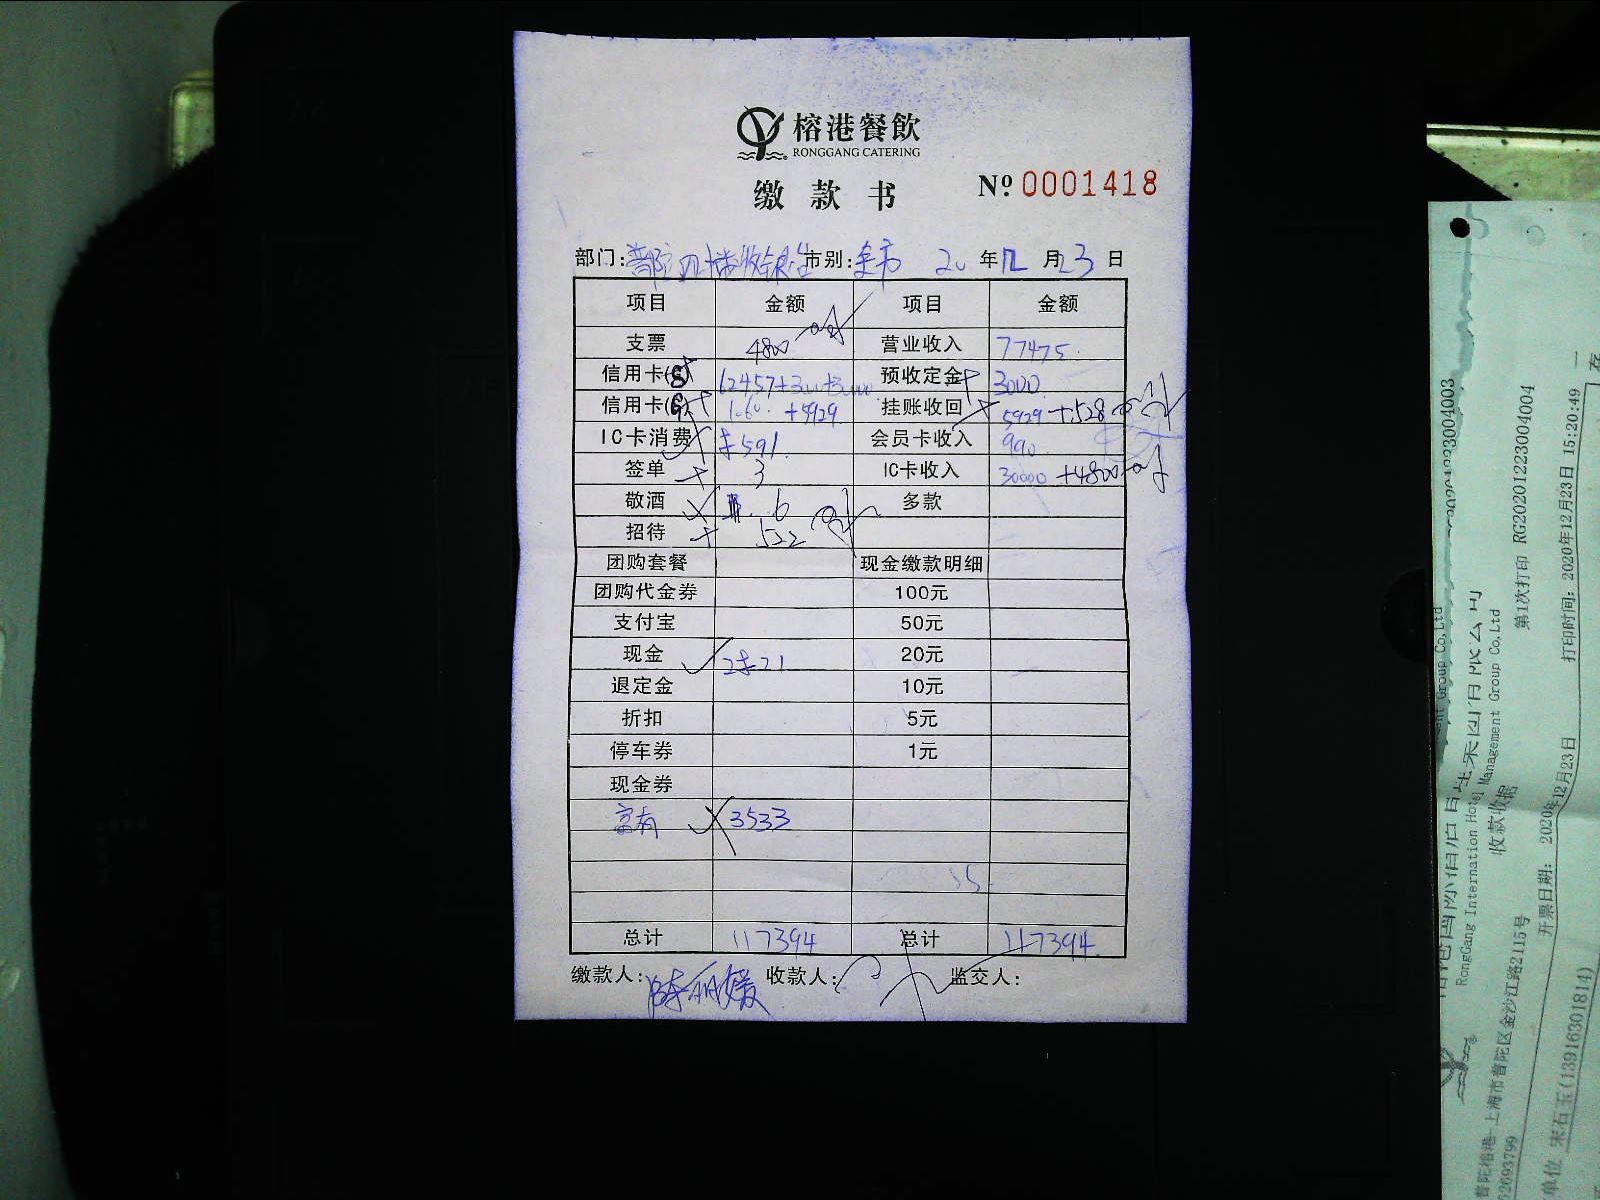 榕港餐飲
RONGGANG CATERING
缴款书
№ 0001418
部门: 普陀四楼收银台 市别: 全市 20 年 12 月 23 日
项目 金额 项目 金额
支票 4800 营业收入 77475.
信用卡 62457+3000+30000 预收定金 3000
信用卡 +5929 挂账收回 5929+528
IC卡消费 会员卡收入 990
签单 3 IC卡收入 30000+4800
敬酒 6 多款
招待 522
团购套餐 现金缴款明细
团购代金券 100元
支付宝 50元
现金 20元
退定金 10元
折扣 5元
停车券 1元
现金券
富有 3533
总计 117394 总计 117394
缴款人: 陈丽媛 收款人: 监交人:
RG20201223004003
Group Co.,Ltd
RongGang International Hotel Management Group Co.,Ltd
收款收据
第1次打印 RG20201223004004
打印时间: 2020年12月23日 15:20:49
开票日期: 2020年12月23日
普陀榕港--上海市普陀区金沙江路2115号
52693799
单位 宋石玉(13916301814)
一
存